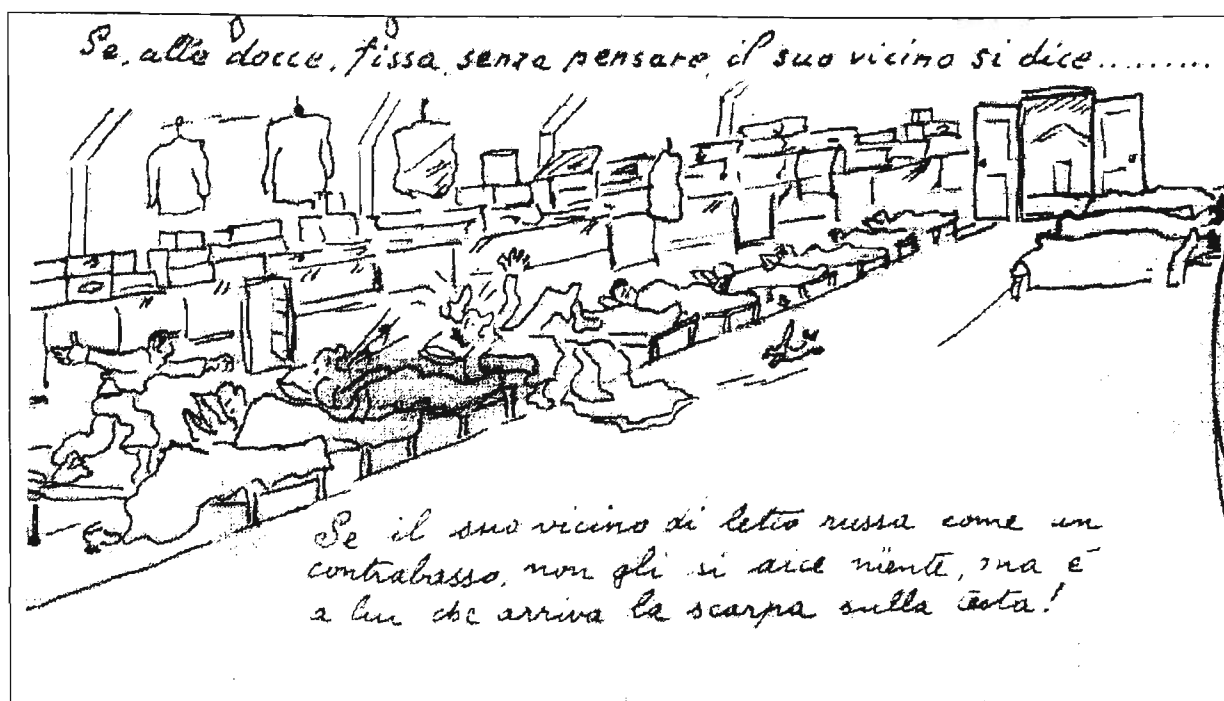 Se, alle docce, fissa, senza pensare, il suo vicino si dice.........
Se il suo vicino di letto russa come un
contrabasso, non gli si dice niente, ma è
a lui che arriva la scarpa sulla testa!